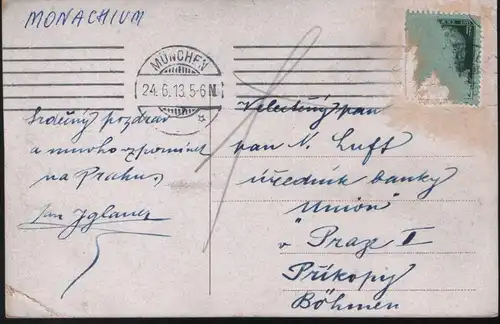 MONACHIUM
MÜNCHEN
24.6.13.5-6 N.
Srdečný pozdrav
a mnoho vzpomínek
na Prahu,
Jan Iglauer
Velectěný pan
pan N. Luft
úředník banky
"Union"
v Praze II
Příkopy
Böhmen